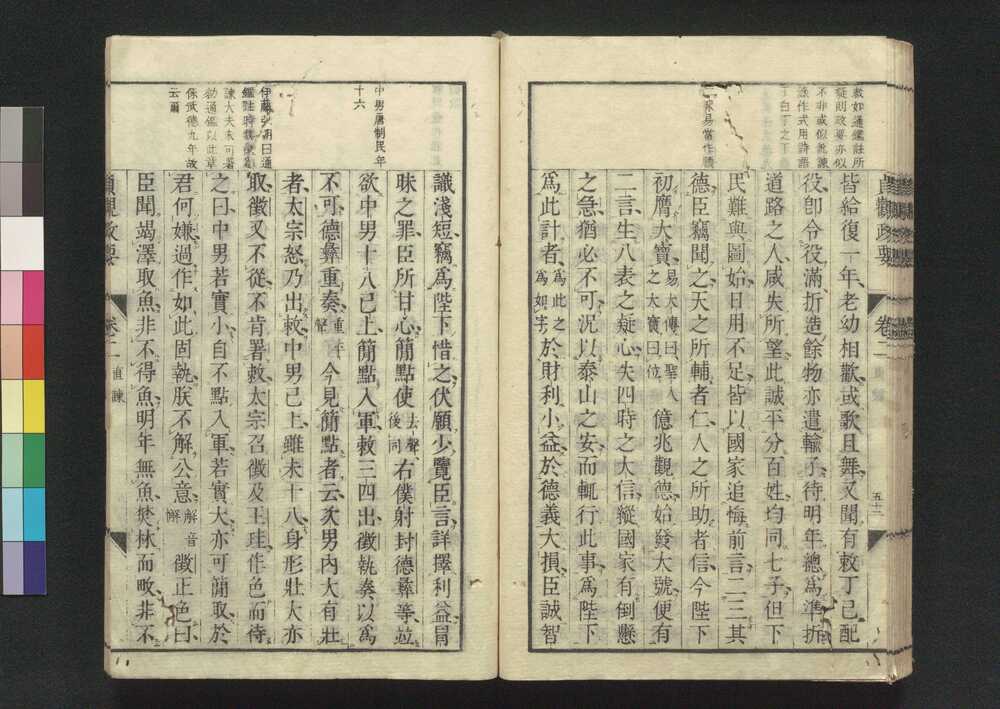 敕如通鑑註所
疑則政要亦似
皆給復一年老幼相歡或歌且舞又聞有敕丁已配
役卽令役滿折造餘物亦遣輸了待明年總爲準折
道路之人咸失所望此誠平分百姓均同七子但下
民難與圖始日用不足皆以國家追悔前言二三其
德臣竊聞之天之所輔者仁人之所助者信今陛下
初膺大寶易大傳曰聖人之大寶曰位億兆觀德始發大號便有
二言生八表之疑心失四時之大信縱國家有倒懸
之急猶必不可況以泰山之安而輒行此事爲陛下
爲此計者爲此之爲如字於財利小益於德義大損臣誠智
五十二
貞觀政要
卷二
直諫
中男唐制民年
十六
諫大夫未可署
敕通鑑以此章
係武德九年故
云爾
識淺短竊爲陛下惜之伏願少覽臣言詳擇利益冒
昧之罪臣所甘心簡點使去聲後同右僕射封德彝等竝
欲中男十八已上簡點入軍敕三四出徵執奏以爲
不可德彝重奏重平聲今見簡點者云次男內大有壯
者太宗怒乃出敕中男已上雖未十八身形壯大亦
取徵又不從不肯署敕太宗召徵及王珪作色而待
之曰中男若實小自不點入軍若實大亦可簡取於
君何嫌過作如此固執朕不解公意解音懈徵正色曰
臣聞竭澤取魚非不得魚明年無魚焚林而畋非不